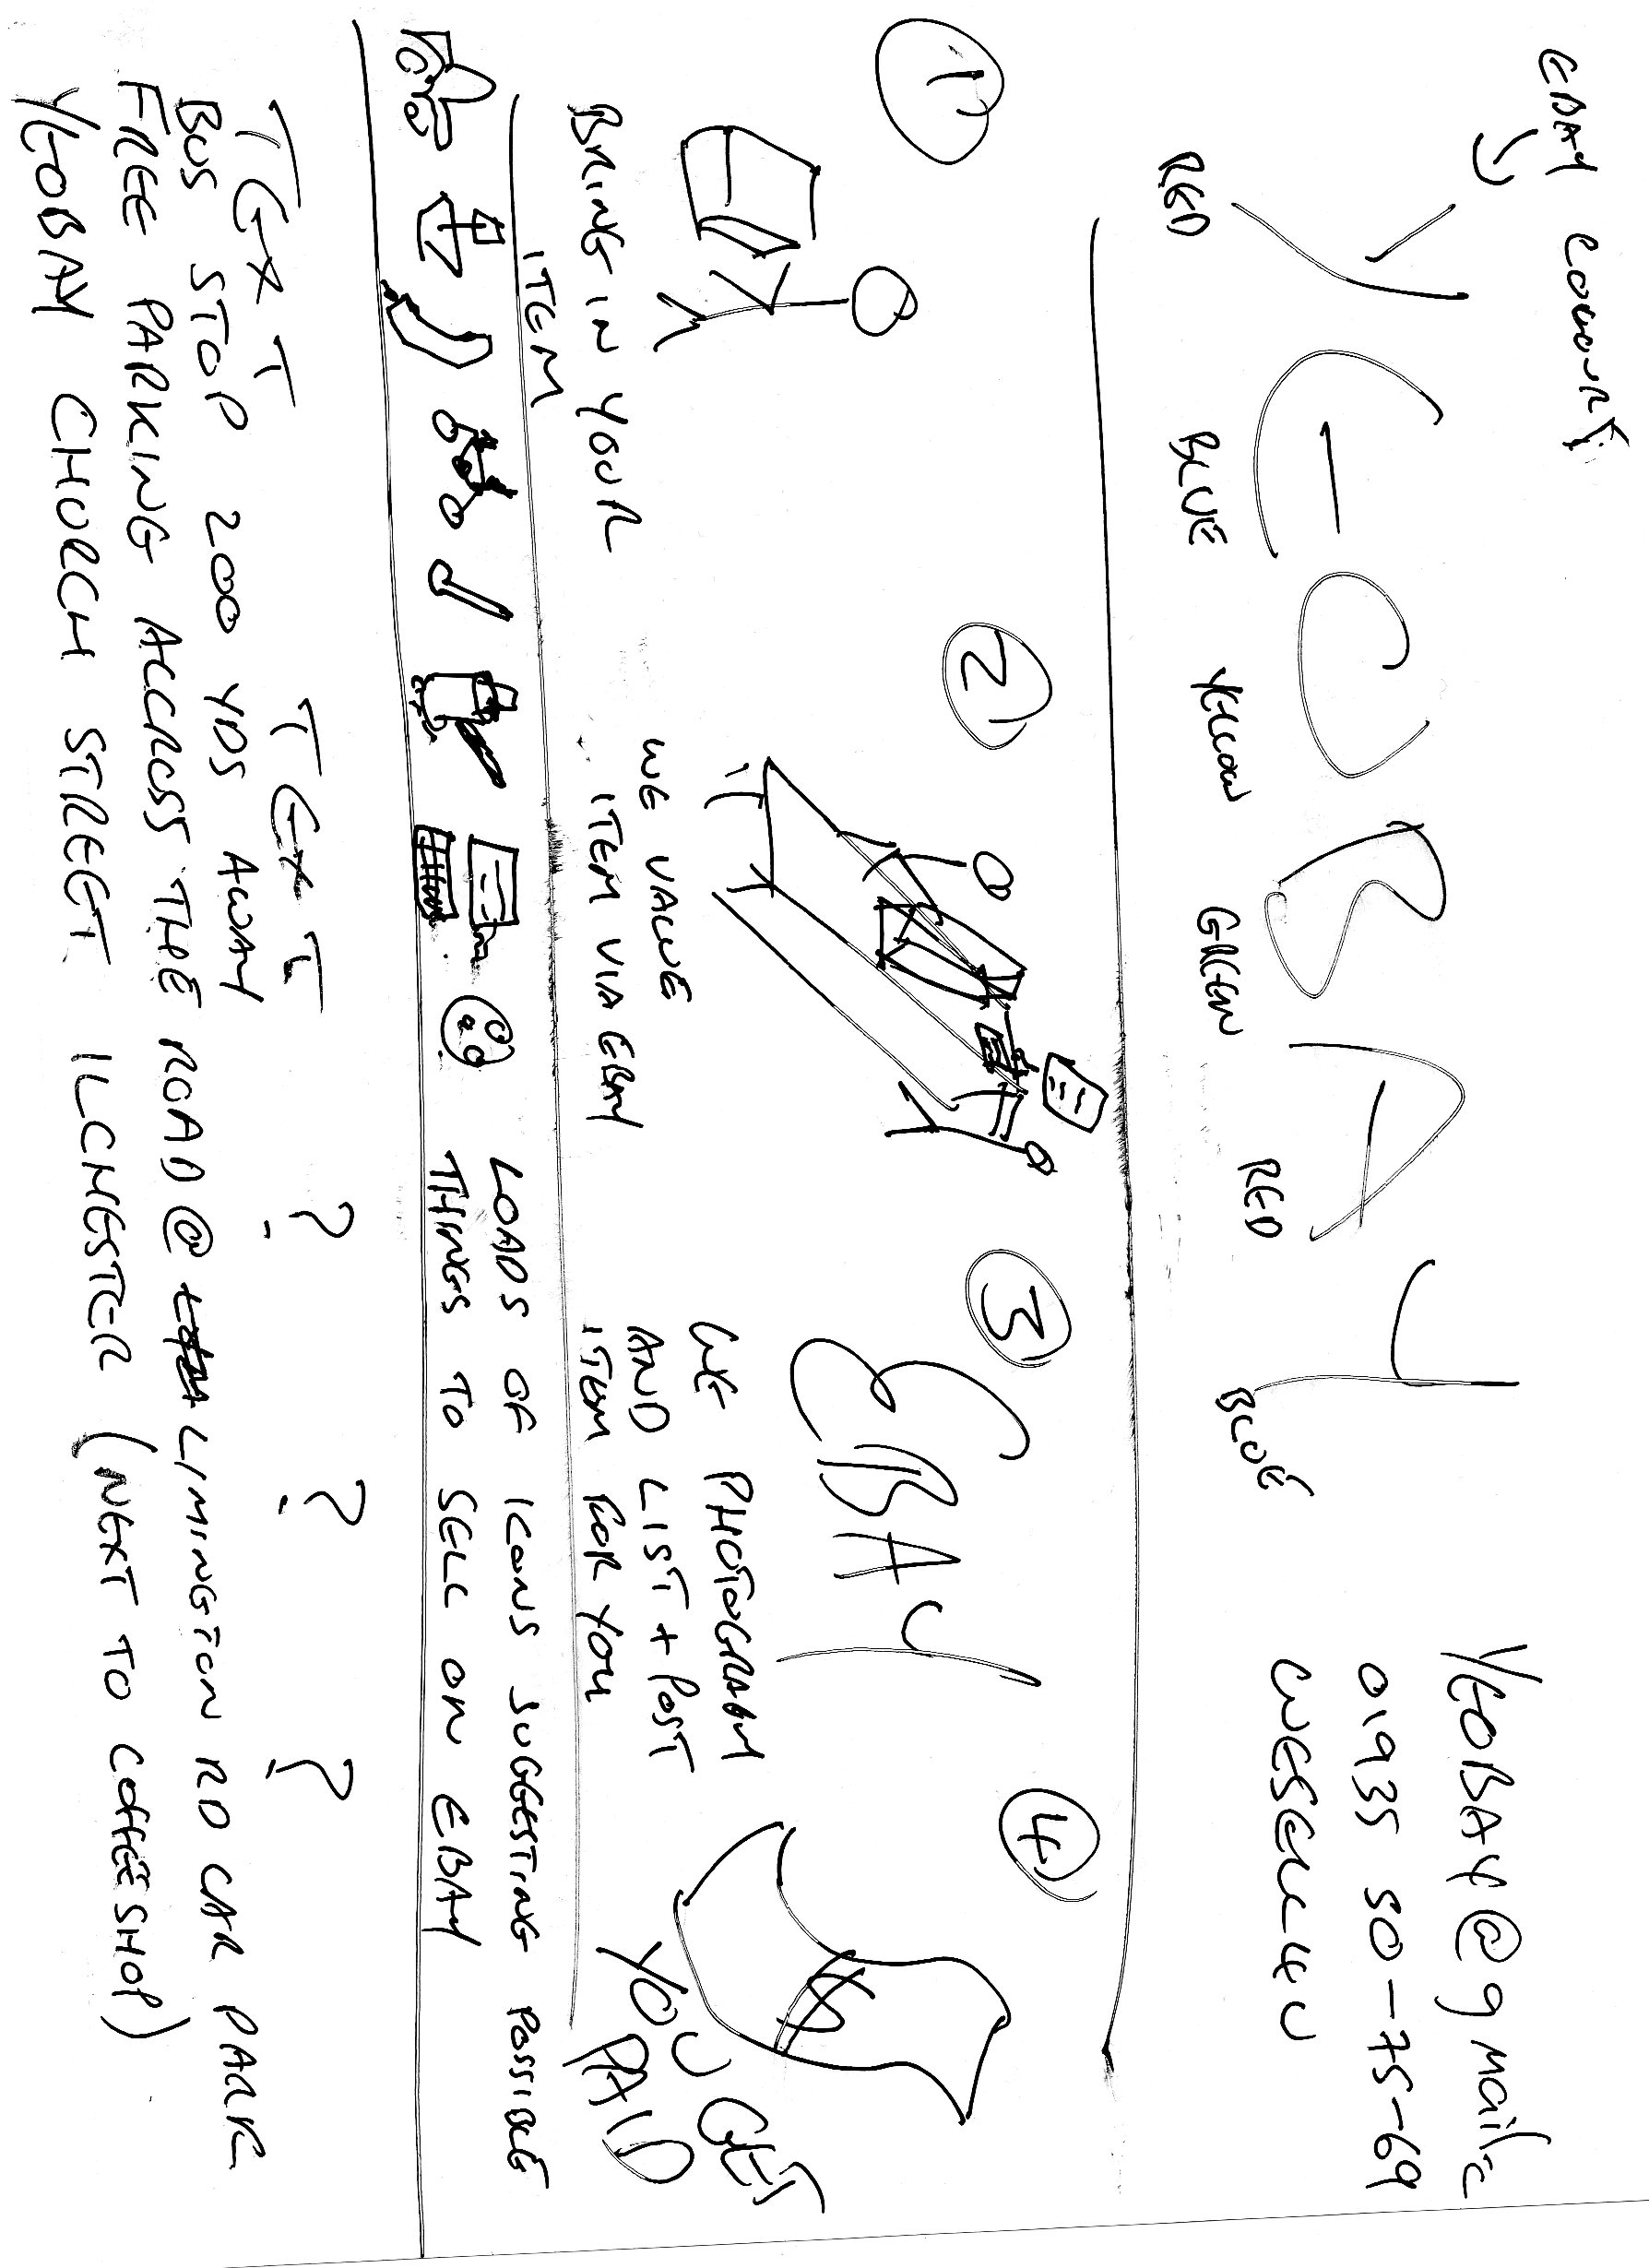 EBAY COLOURS
YEOBAY
RED BLUE YELLOW GREEN RED BLUE
YEOBAY@gmail.c
01935 50-75-69
WESELL4U
1
BRING IN YOUR
ITEM
2
WE VALUE
ITEM VIA EBAY
3
EBAY
WE PHOTOGRAPH
AND LIST + POST
ITEM FOR YOU
4
YOU GET
PAID
LOADS OF ICONS SUGGESTING POSSIBLE
THINGS TO SELL ON EBAY
TEXT TEXT ? ? ?
BUS STOP 200 YDS AWAY
FREE PARKING ACCROSS THE ROAD @ LIMINGTON RD CAR PARK
YEOBAY CHURCH STREET ILCHESTER (NEXT TO COFFEE SHOP)